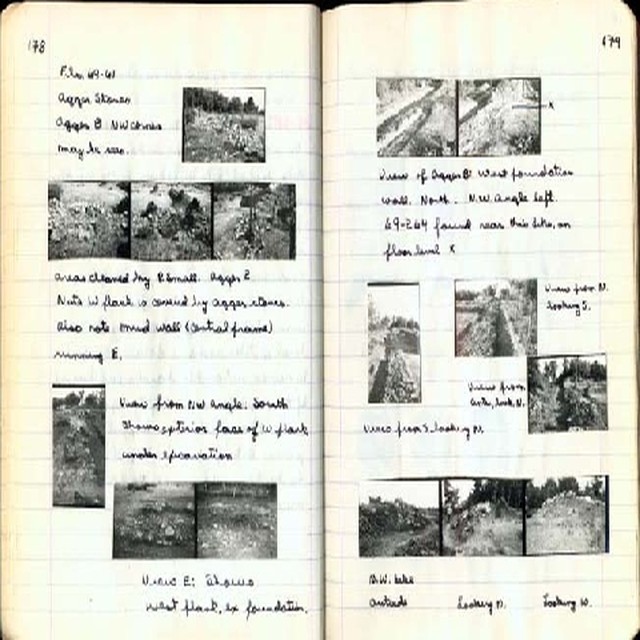 178
Film 69-61
Agger Stones
Agger B NW Corner
may be seen.
areas cleaned by P. Small. Agger B.
Note W flank is covered by agger stones.
Also note mud wall (central frame)
running E.
View from NW angle: South
Shows exterior face of W flank
under excavation
View E: Shows
West flank, ex foundation.
179
x
View of Agger B: West foundation
wall. North. N.W. Angle left.
69-264 found near this site, on
floor level x
View from N.
looking S.
View from
look, N.
View from S. looking N.
Outside
Looking N.
Looking W.